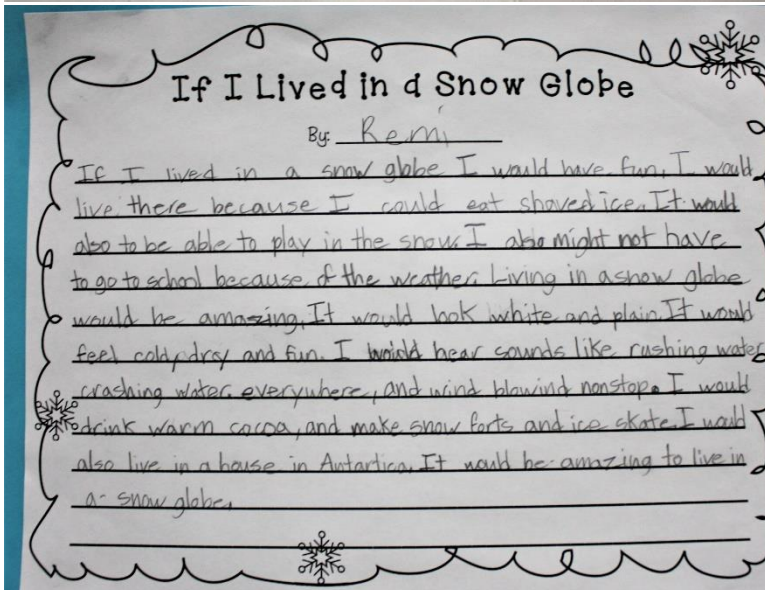 If I Lived in a Snow Globe
By: Remi
If I lived in a snow globe I would have fun. I would
live there because I could eat shaved ice. It would
also to be able to play in the snow. I also might not have
to go to school because of the weather. Living in a snow globe
would be amazing. It would look white and plain. It would
feel cold, dry and fun. I would hear sounds like rushing water
crashing water everywhere, and wind blowind nonstop. I would
drink warm cocoa, and make snow forts and ice skate. I would
also live in a house in Antartica. It would be amazing to live in
a snow globe.